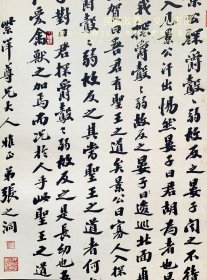 探爵鷇鷇弱故反之晏子
景公汗出惕然晏子曰君胡為者也
我探爵鷇鷇弱故反之晏子逡巡北面
賀曰吾君有聖王之道矣景公曰寡人入探
鷇鷇弱故反之其當聖王之道者何
子對曰君探爵鷇鷇弱故反之是長幼也吾
愛禽獸之加焉而況於人乎此聖王之道
尊兄大人雅正弟張之洞